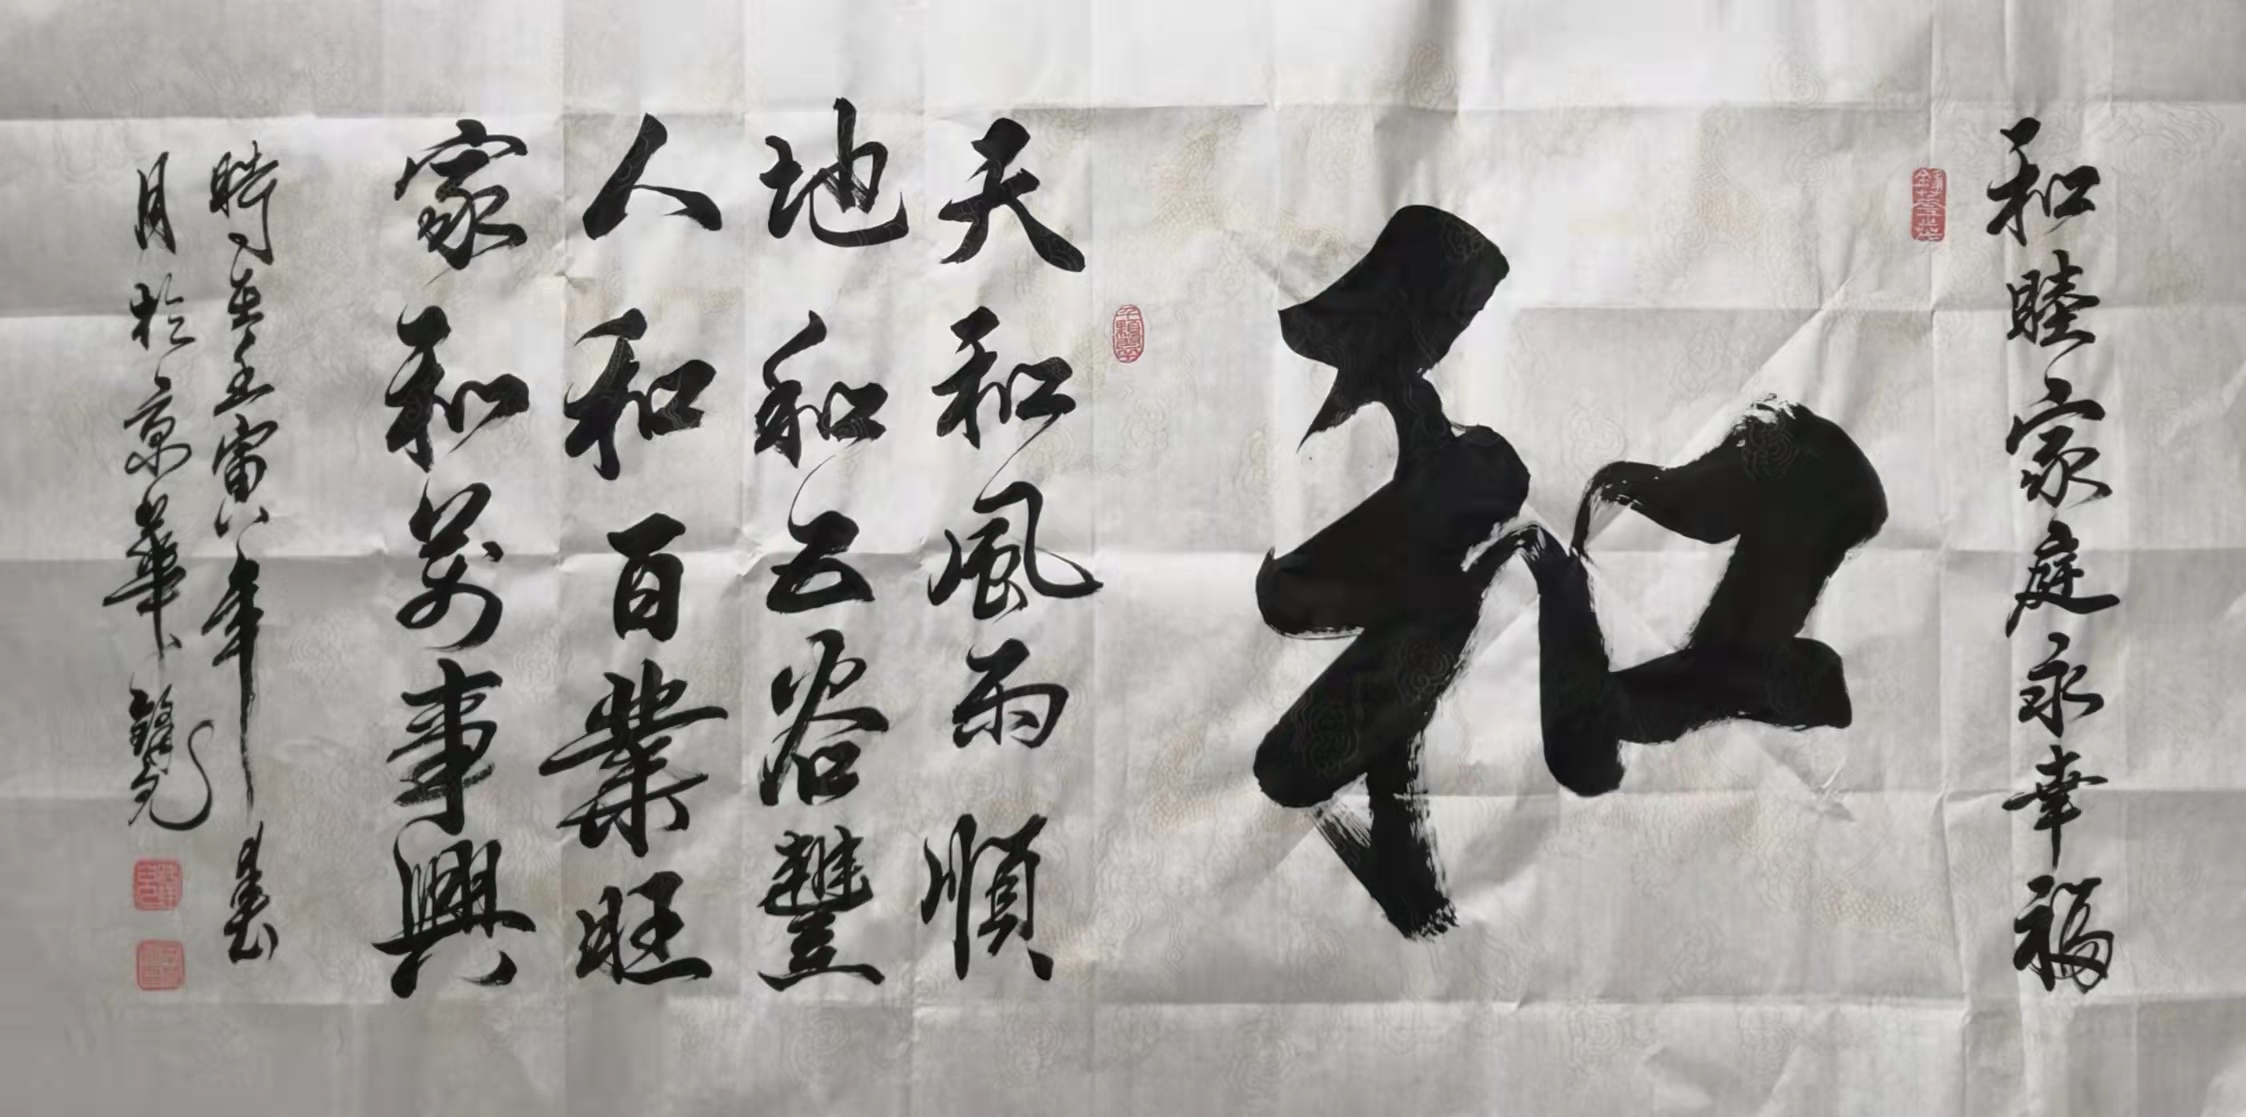 和睦家庭永幸福
和
天和風雨順
地和五谷豐
人和百業旺
家和萬事興
時在壬寅八年春
月於京華